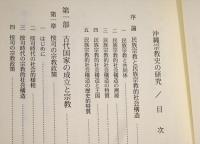 沖縄宗教史の研究／目次
序論 民族宗教と民族宗教的社会構造
一 民族宗教と共同体
二 民族宗教的社会構造の淵源
三 民族宗教的社会構造の
四 民族宗教的社会構造と王国
五 民族宗教的社会構造の歴史的特質
第一部 古代国家の成立と宗教
第一章 按司の宗教政策
一 はじめに
二 按司時代の社会的様相
三 按司時代の宗教的社会構造
四 按司の宗教政策